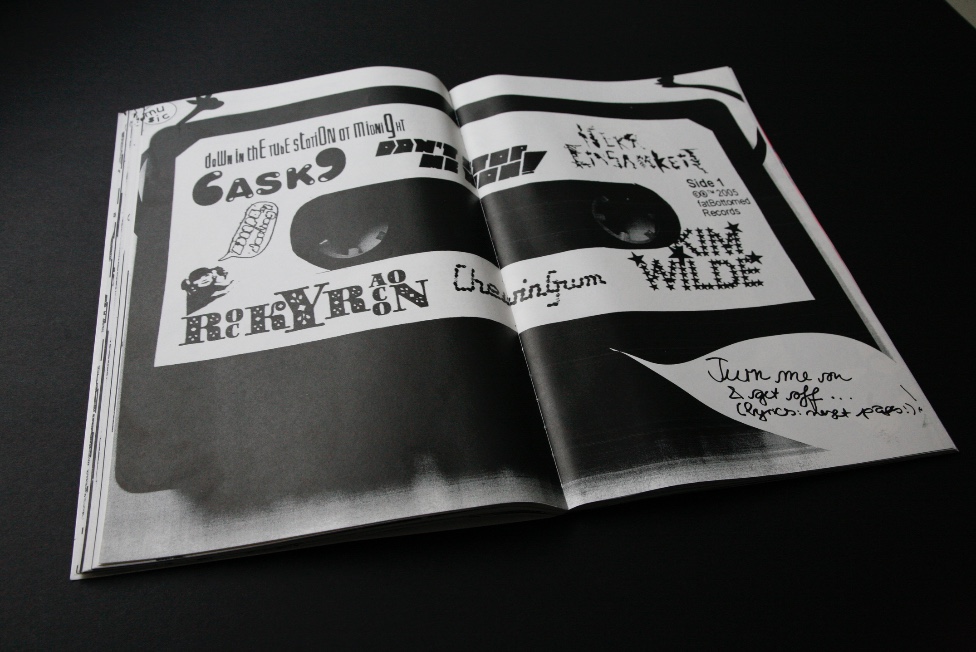 mu
sic
doWn in thE tUbE statiON at midnigHt
DON'T STOP
ME NOW!
ASK
Side 1
©®™ 2005
fatBottomed
Records
KIM
WILDE
ROcKYRAcOoN
ChewinGum
Turn me on
& get off ...
(lyrics: next pages!)